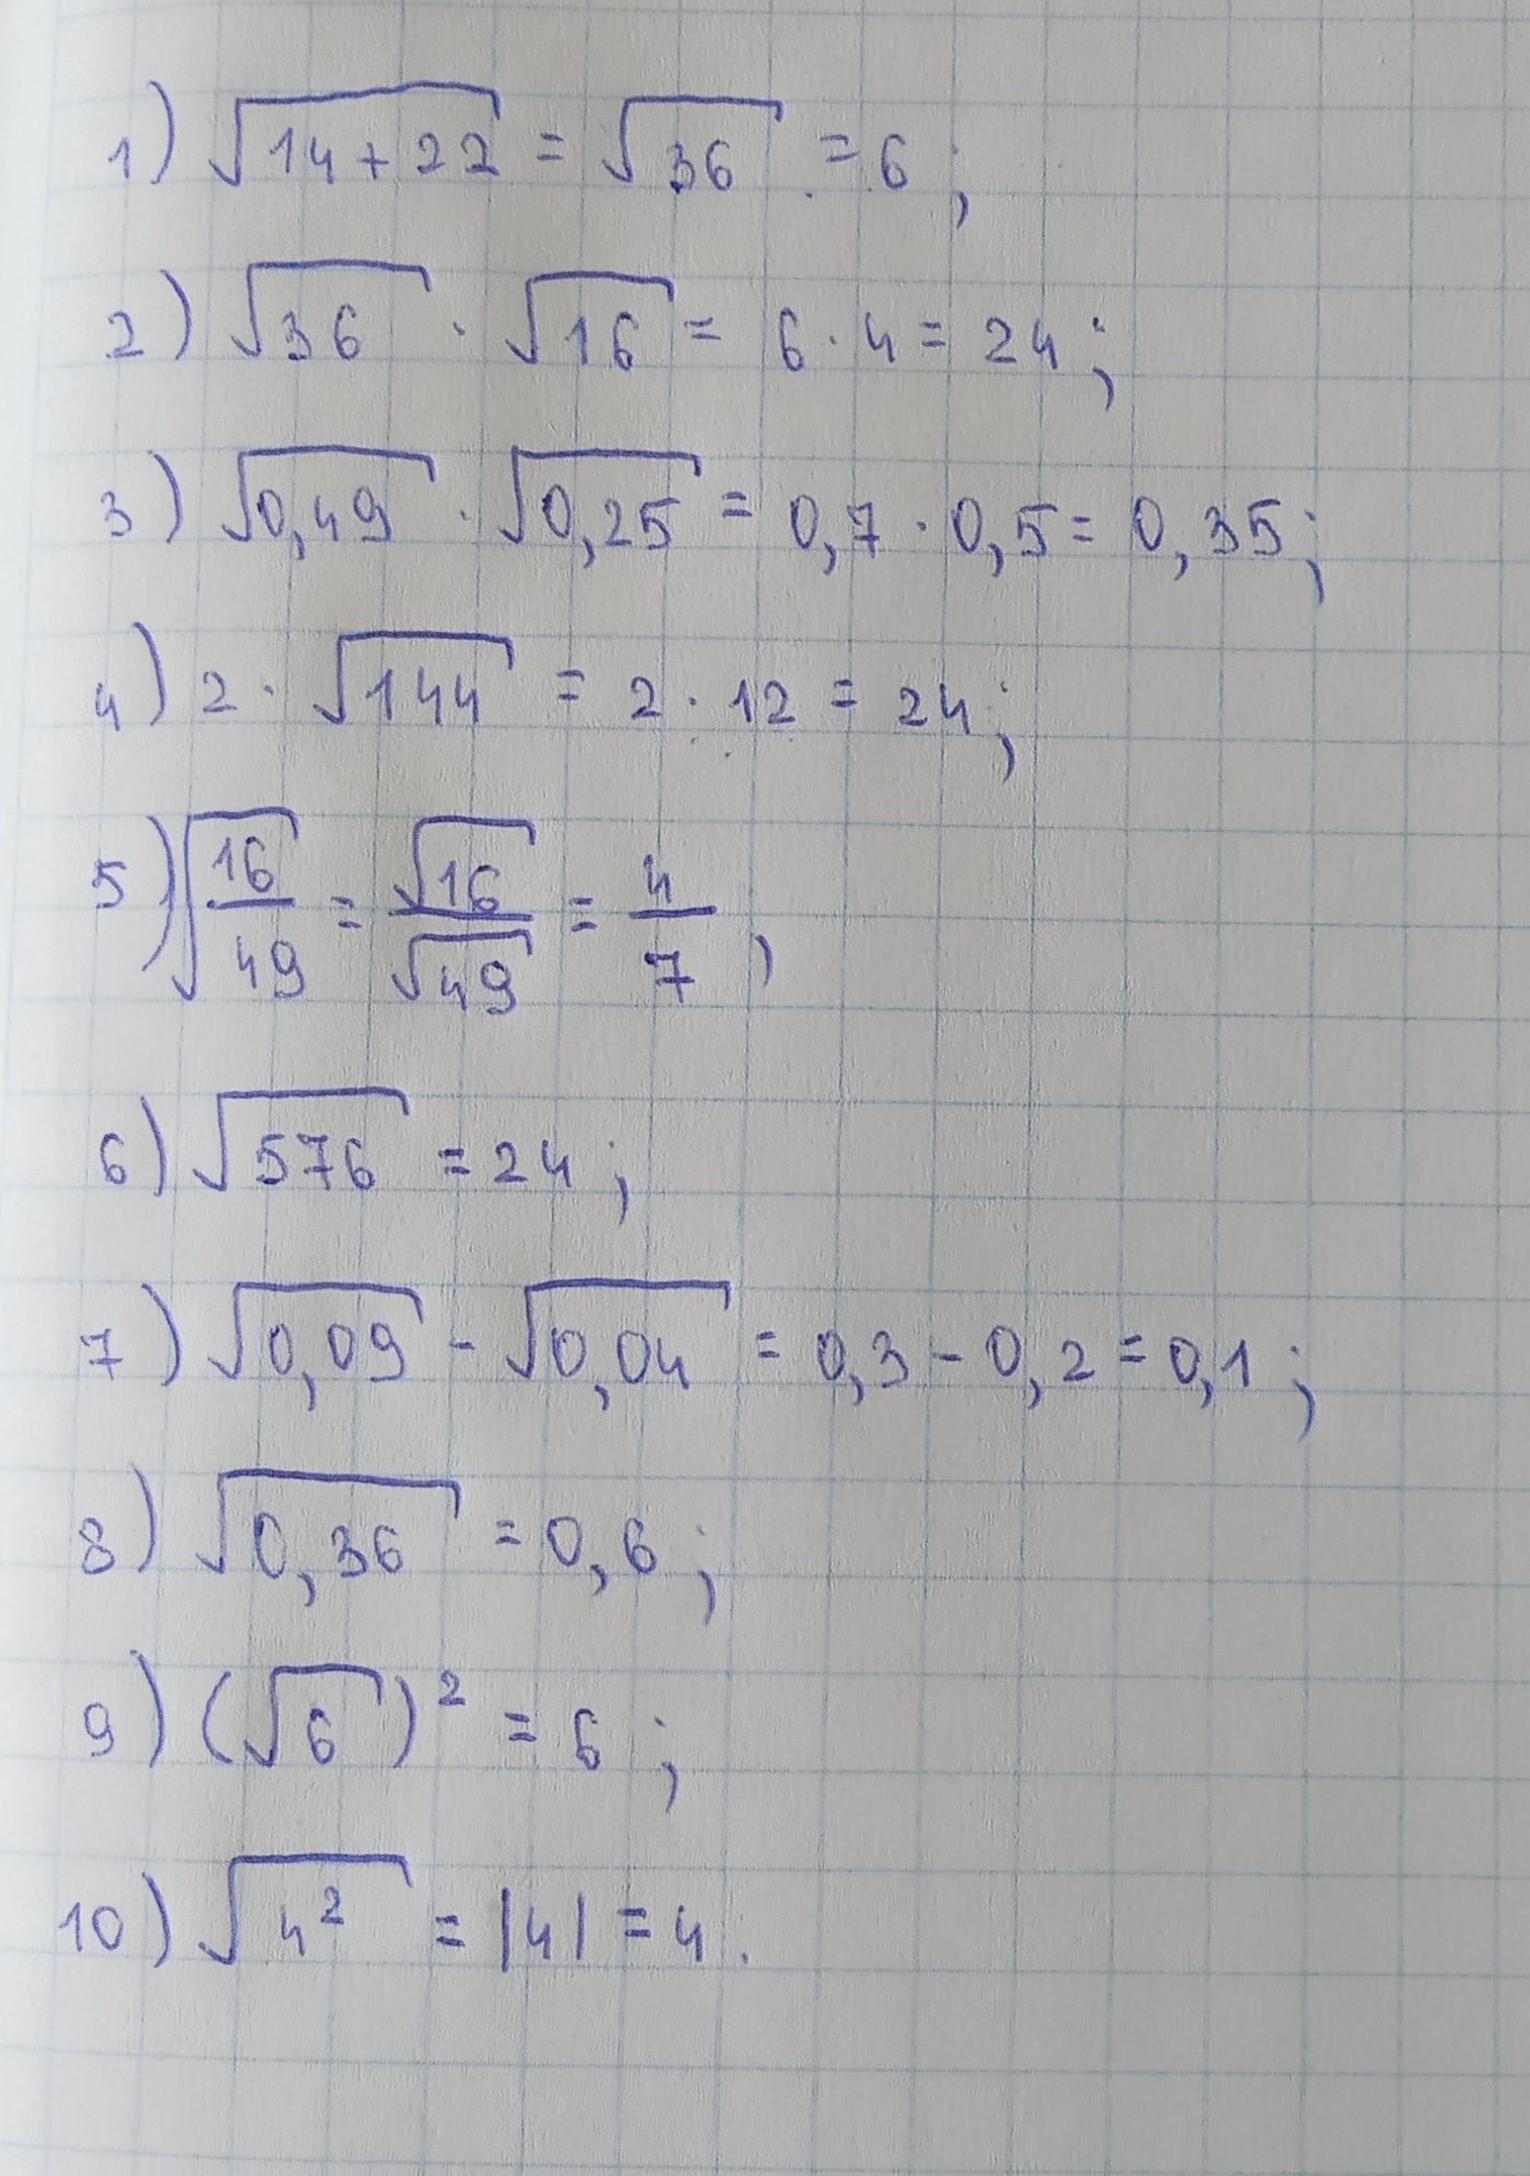 1) √14+22 = √36 = 6;
2) √36 · √16 = 6 · 4 = 24;
3) √0,49 · √0,25 = 0,7 · 0,5 = 0,35;
4) 2 · √144 = 2 · 12 = 24;
5) √16/49 = √16/√49 = 4/7,
6) √576 = 24;
7) √0,09 - √0,04 = 0,3 - 0,2 = 0,1;
8) √0,36 = 0,6;
9) (√6)² = 6;
10) √4² = |4| = 4.